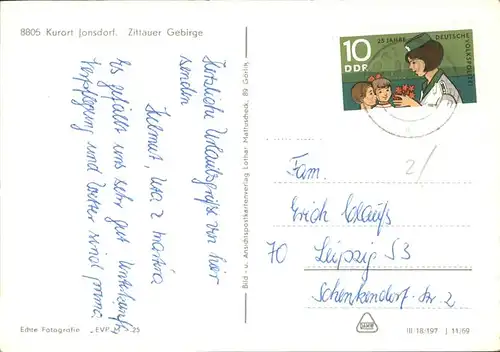 8805 Kurort Jonsdorf. Zittauer Gebirge
Herzliche Urlaubsgrüße von hier
senden
Helmut, Uta & Martina
Es gefällt uns sehr gut. Unterkunft,
Verpflegung und Wetter sind prima.
Echte Fotografie „EVP 25
Bild - u. Ansichtspostkartenverlag Lothar Mattuscheck, 89 Görlitz
10
DDR
25 JAHRE DEUTSCHE
VOLKSPOLIZEI
2/
Fam.
Erich Clauß
70 Leipzig S3
Schenkendorf-Str. 2
III/18/197 J 11/69